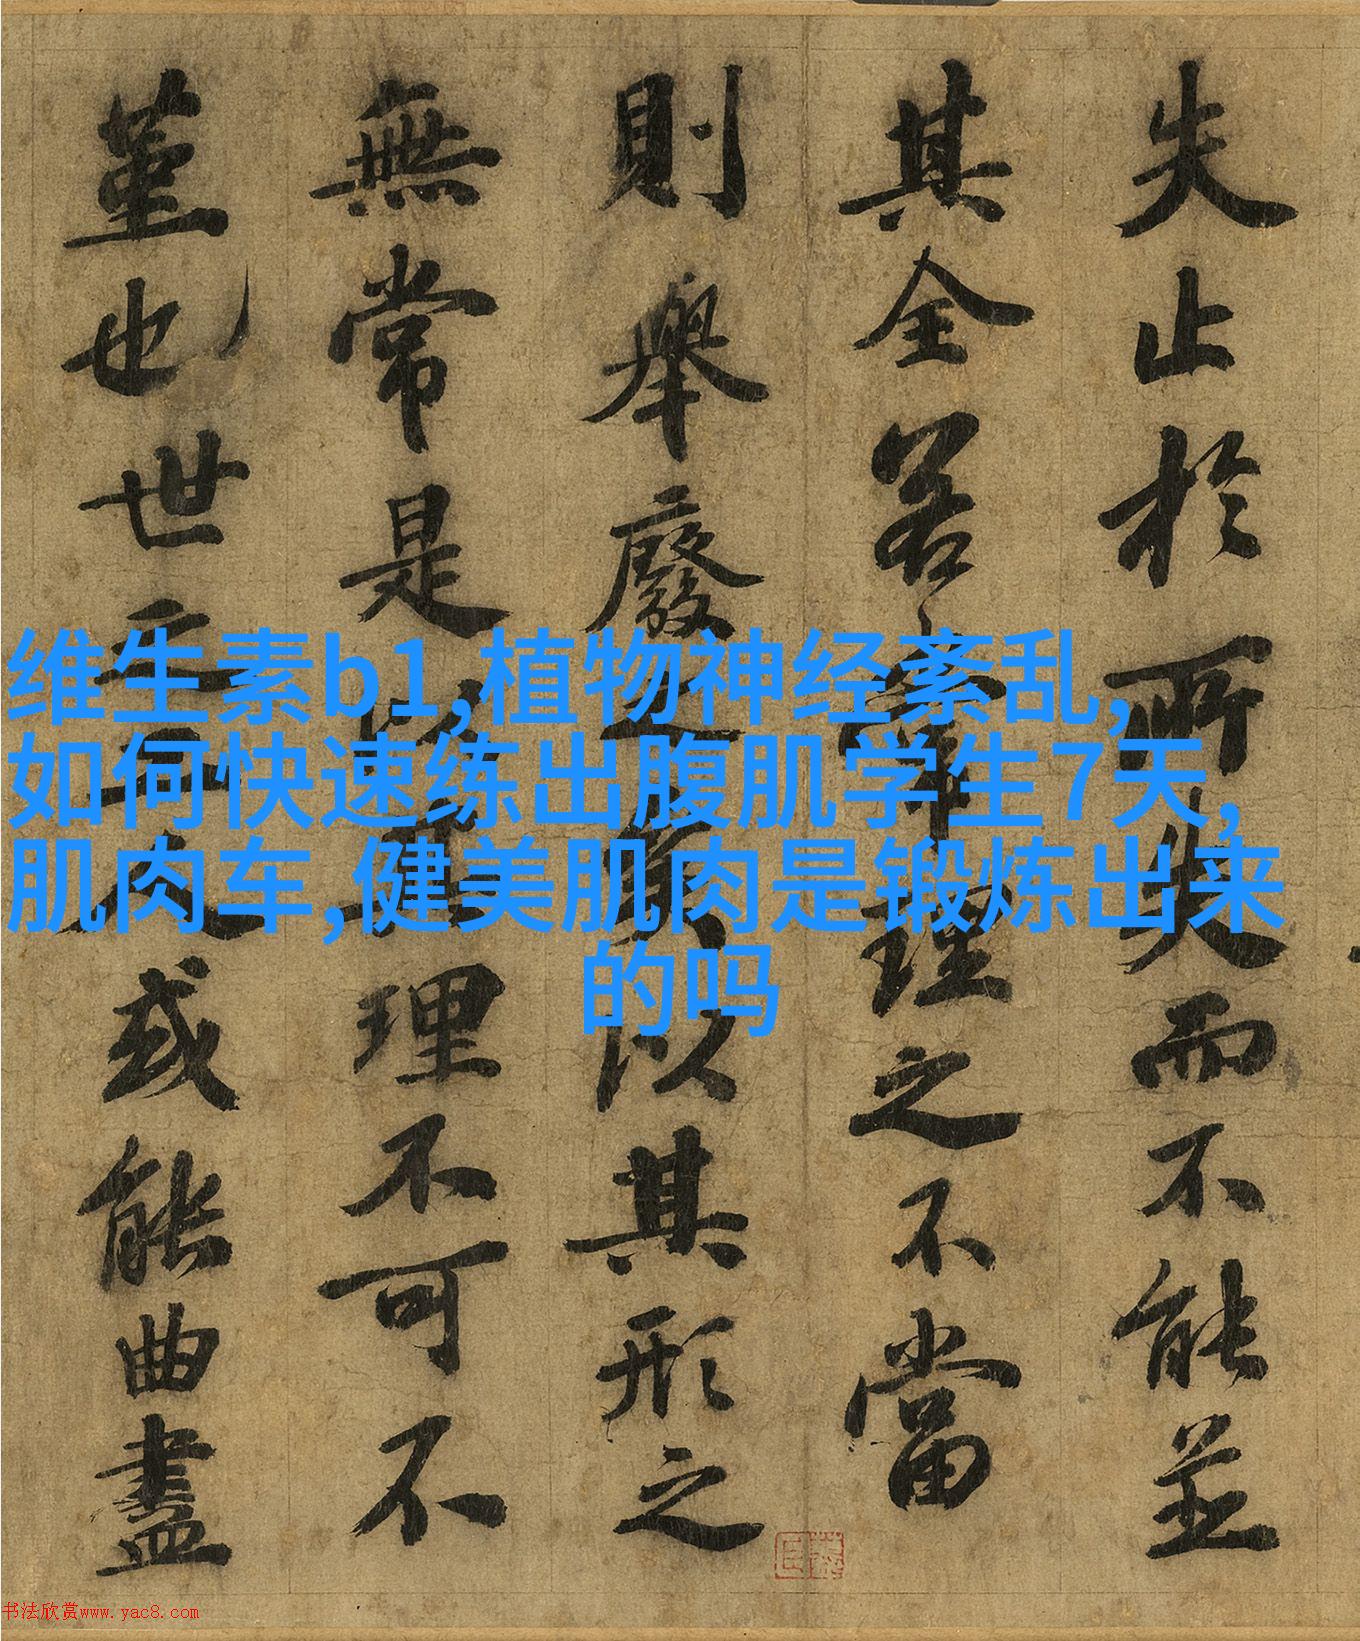 失止於所失而不能並
其全若常理之不當
則舉廢之矣以其形之
無常是以其理不可不
堇也世之工人或能曲盡
维生素b1,植物神经紊乱,
如何快速练出腹肌学生7天,
肌肉车,健美肌肉是锻炼出来
的吗
书法欣赏www.yac8.com